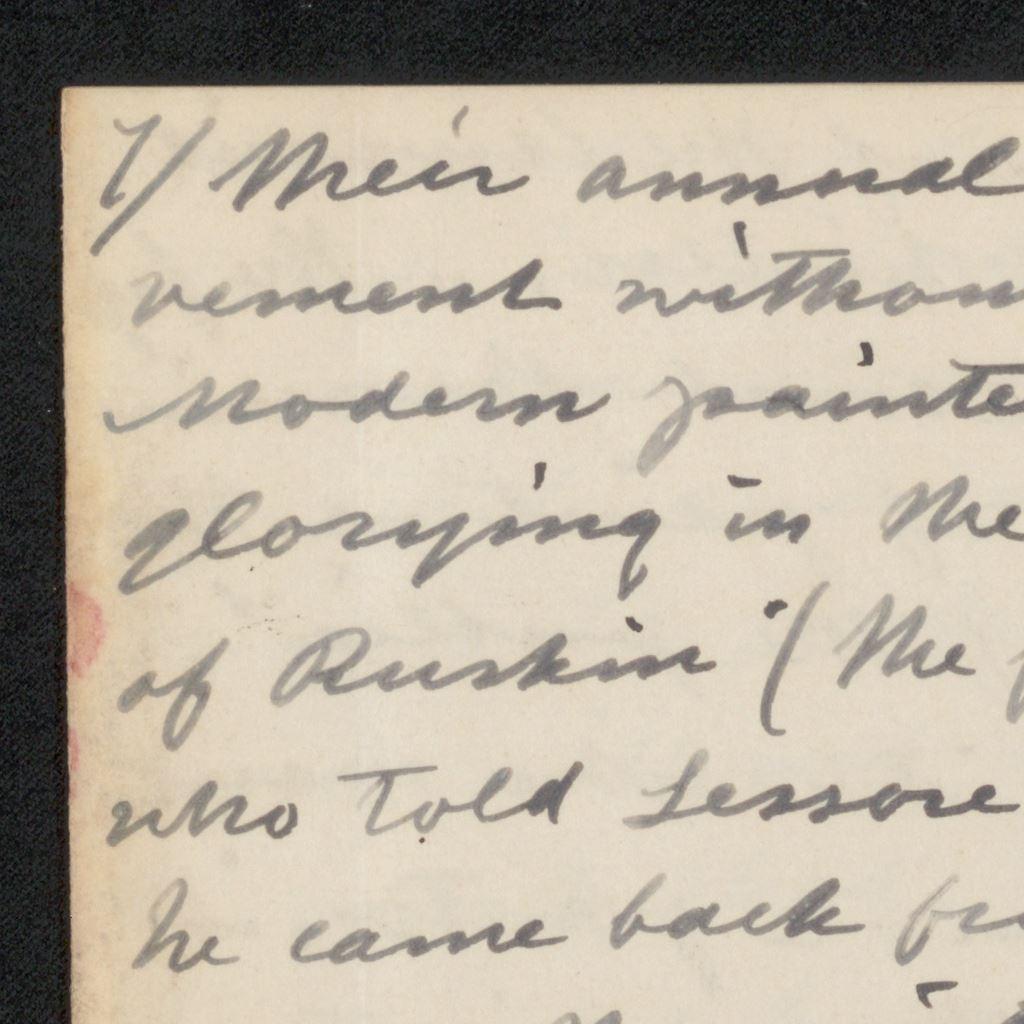 7/ Their annual
vement withou
Modern painte
glorying in the
of Ruskin (the
who told Lessore
he came back fr